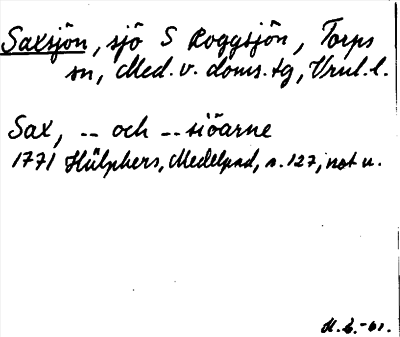 Saxsjön, sjö S Roggsjön, Torps
sn, Med. v. doms. tg, Vrml. l.
Sax, -- och -- siöarne
1771 Hülphers, Medelpad, s. 127, not u.